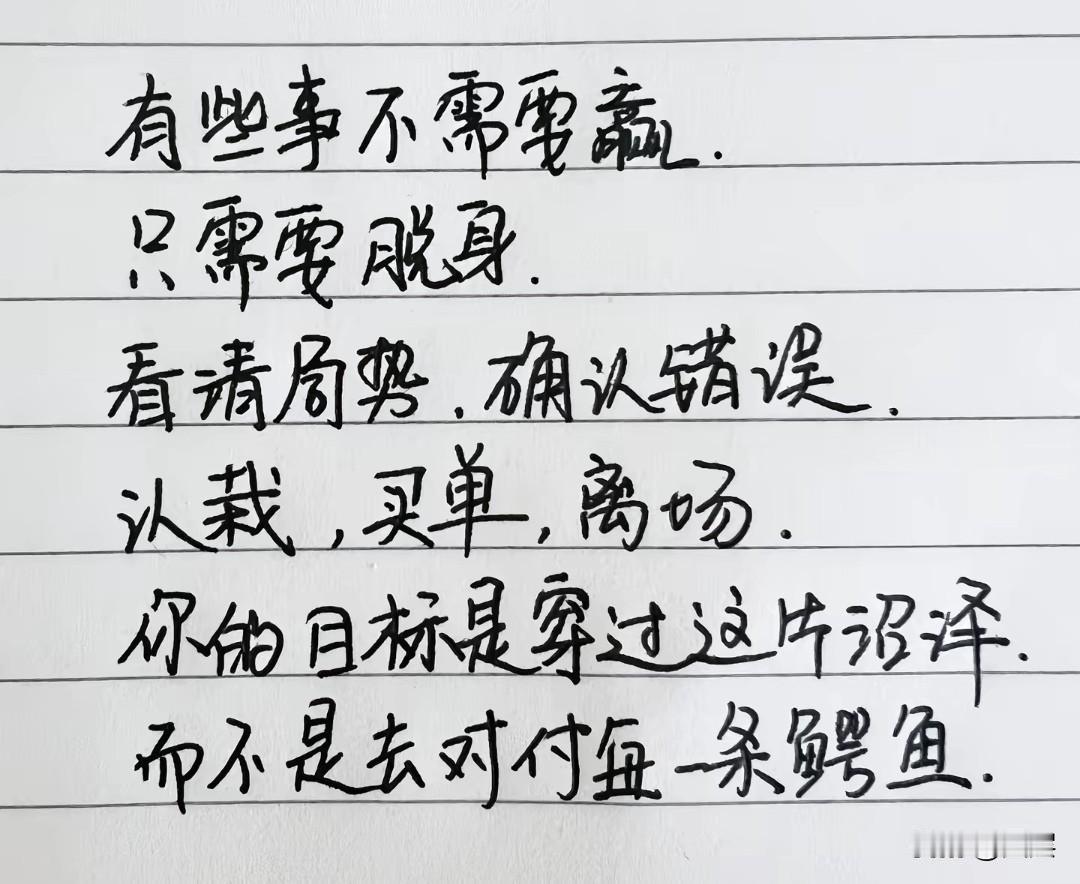 有些事不需要赢.
只需要脱身.
看请局势.确认错误.
认栽,买单,离场.
你的目标是穿过这片沼泽.
而不是去对付每一条鳄鱼.